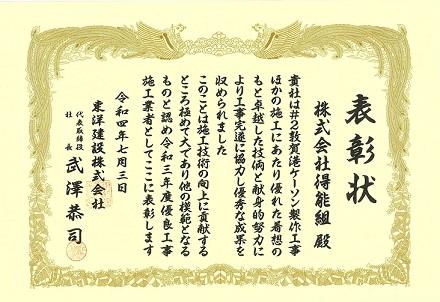 表彰状
株式会社得能組 殿
貴社は#2敦賀港ケーソン製作工事
ほかの施工にあたり優れた着想の
もと卓越した技術と献身的努力に
より工事完遂に協力し優秀な成果を
収められました
このことは施工技術の向上に貢献する
ところ極めて大であり他の模範となる
ものと認め令和三年度優良工事
施工業者としてここに表彰します
令和四年七月三日
東洋建設株式会社
代表取締役
社長 武澤恭司